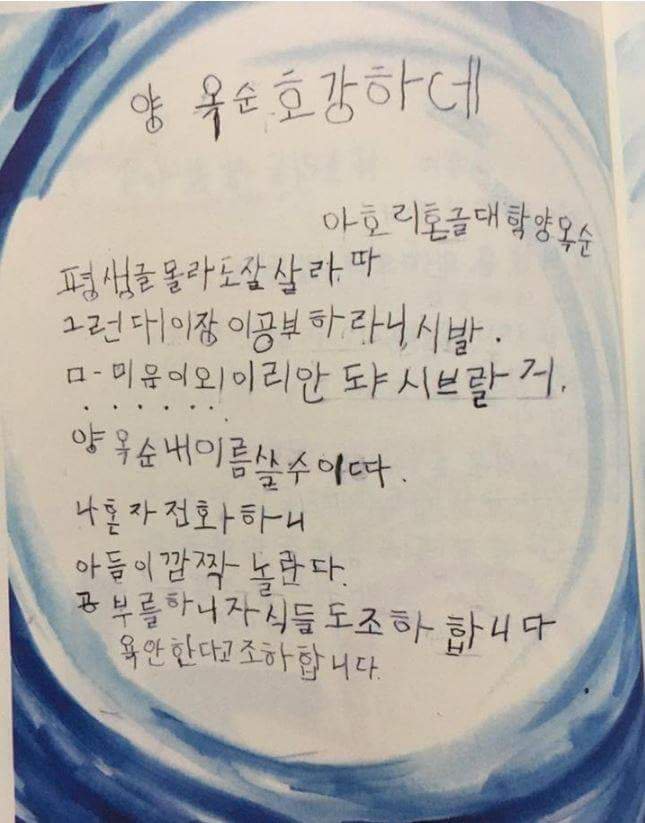 양 옥순호강하데
아호리혼글대학양옥순
평생글몰라도잘살라따
그런대이장이공부하라니시발.
ㅁ-미유이외이리안 도야 시브랄거.
......
양옥순내이름쓸수이따.
나혼자전화하니
아듬이깜짝놀란다.
공부를하니자식들도조하합니다
욕안한다고조하합니다.